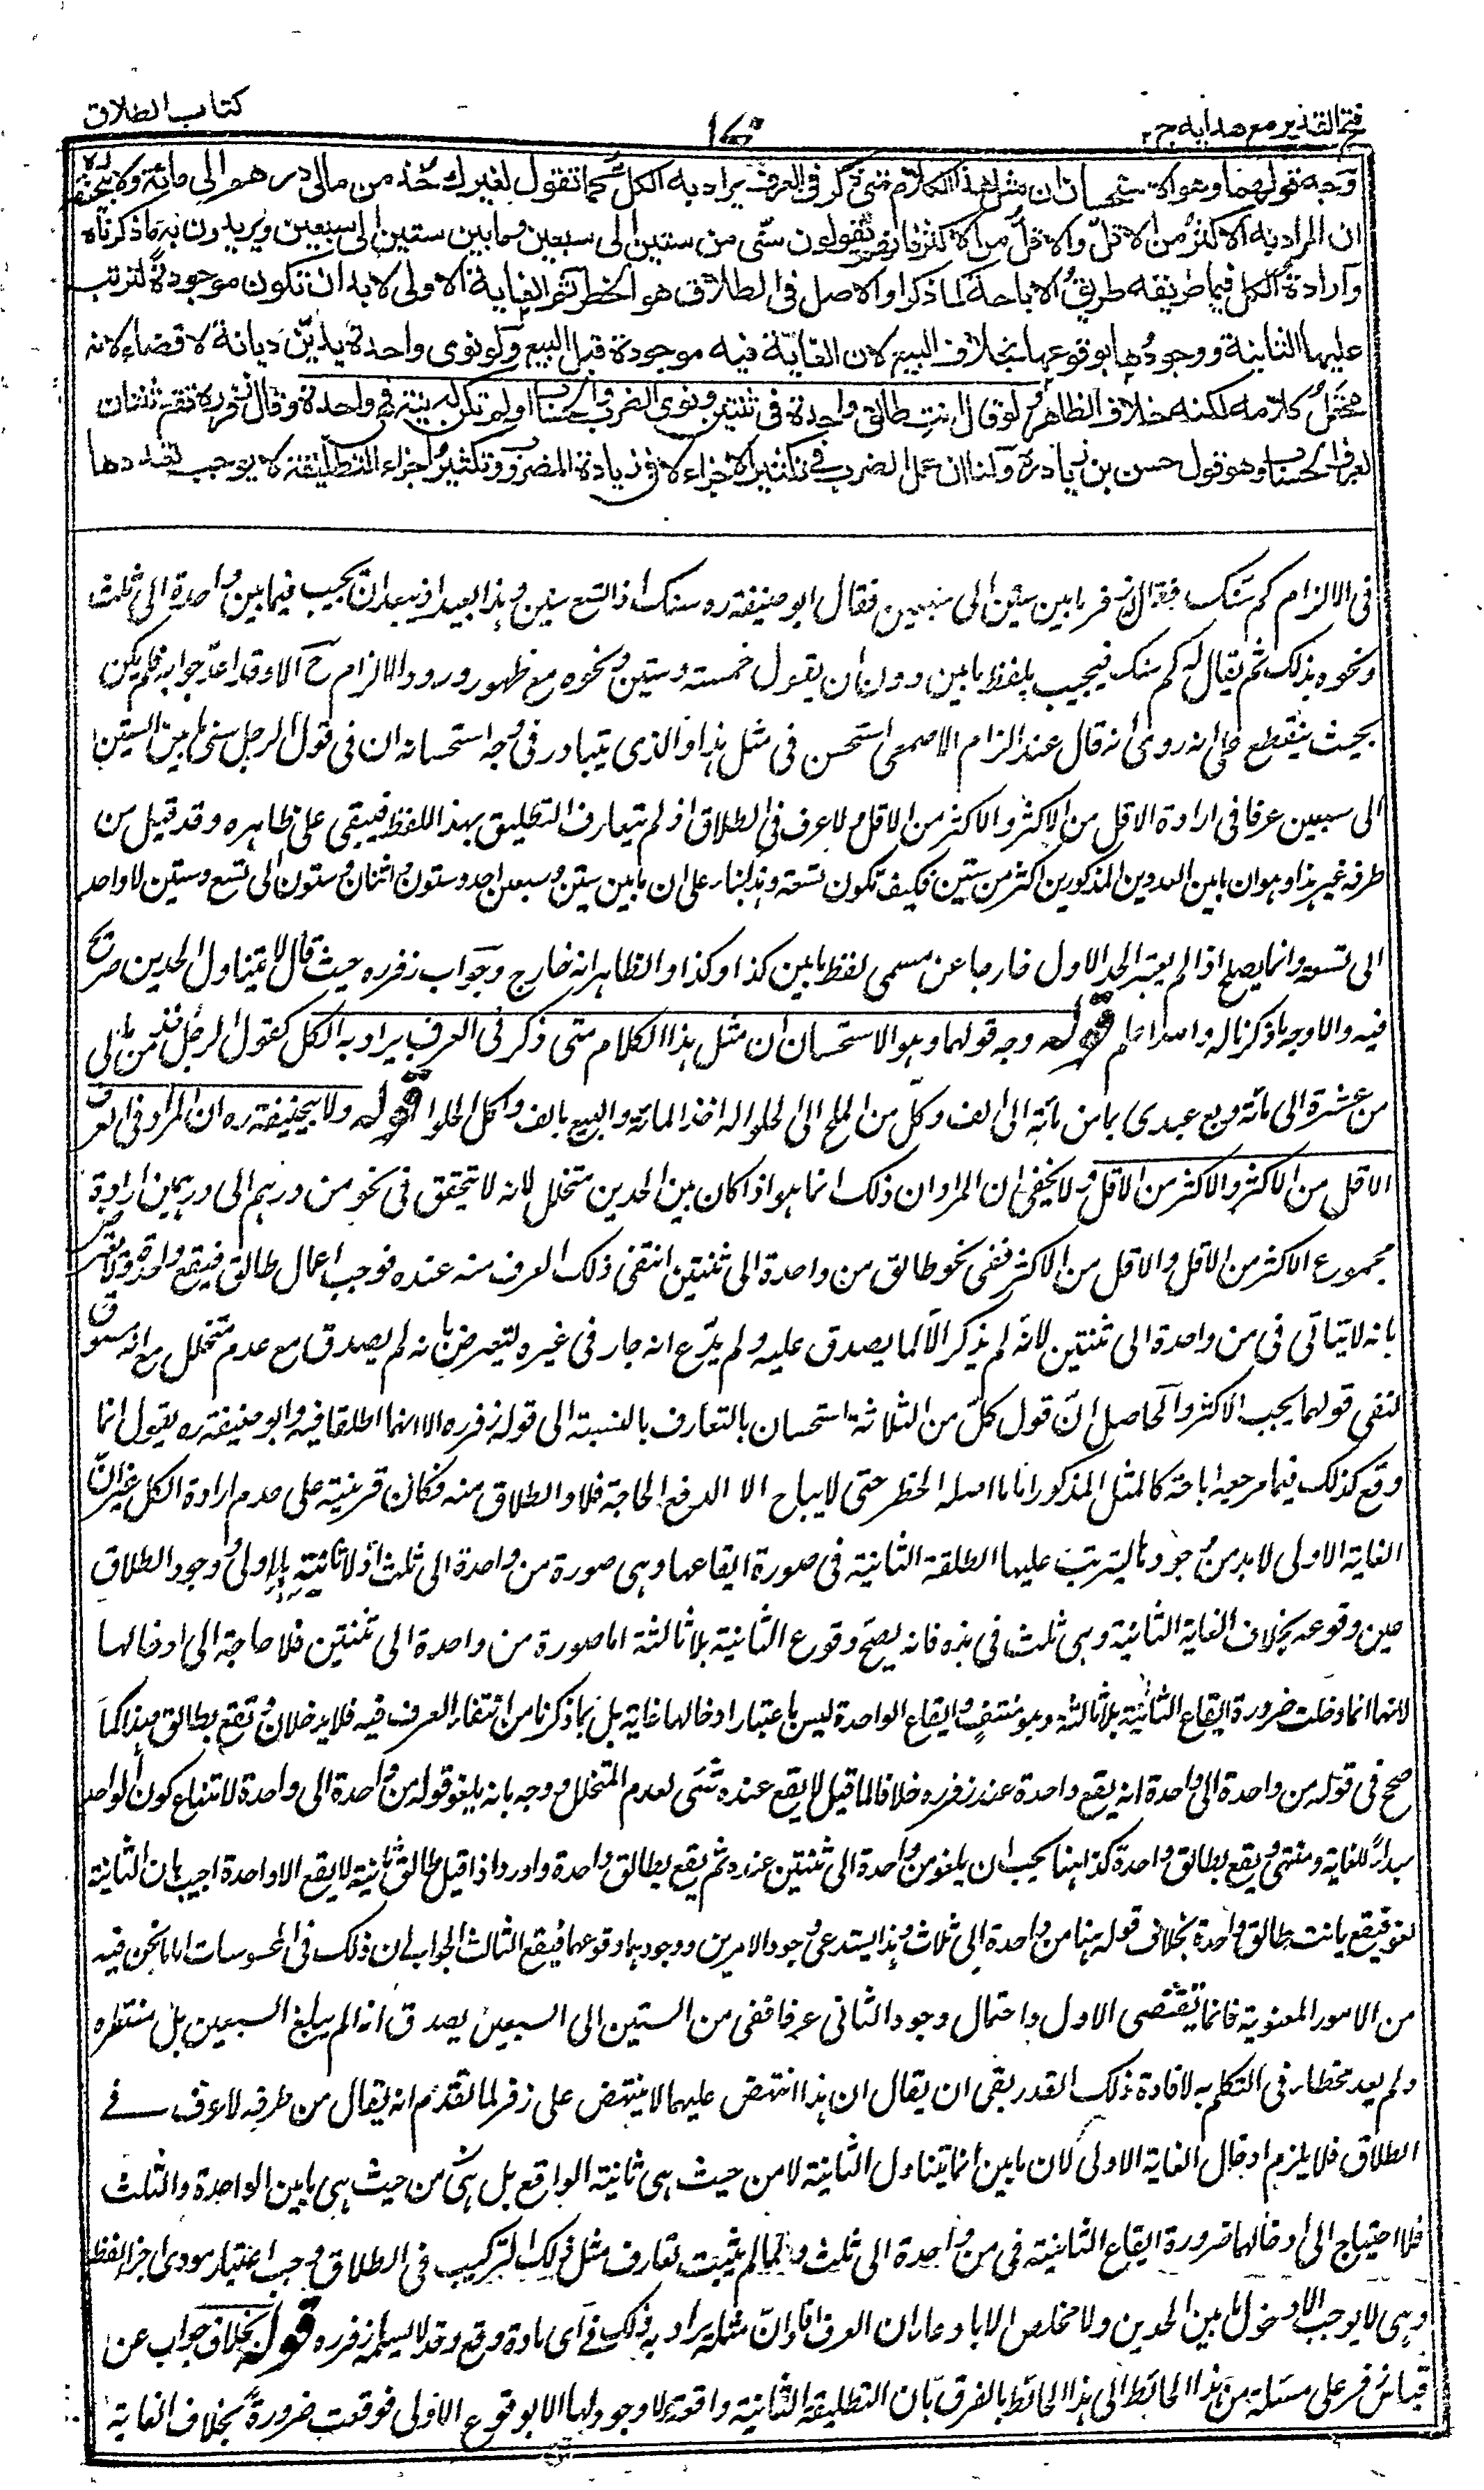 فتح القدير مع هدايه ج ٢
١٧٠
كتاب الطلاق
وجه قولهما وهو الاستحسان ان مثل هذا الكلام متى ذكر فى العرف يراد به الكل كما تقول لغيرك خذ من مالى درهم الى مائة ولا بيحنيفة
ان المراد به الاكثر من الاقل والاقل من الاكثر فانهم يقولون سنى من ستين الى سبعين وما بين ستين الى سبعين ويريدون به ما ذكرناه
وارادة الكل فيما طريقه طريق الاباحة كما ذكرا والاصل فى الطلاق هو الحظر ثم الغاية الاولى لا بد ان تكون موجودة لترتب
عليها الثانية ووجودها بوقوعها بخلاف البيع لان الغاية فيه موجودة قبل البيع ولو نوى واحدة يدين ديانة لا قضاء لانه
محتمل كلامه لكنه خلاف الظاهر ولو قال انت طالق واحدة فى ثنتين ونوى الضرب والحساب او لم تكن له نية فهى واحدة وقال زفر ره تقع ثنتان
لعرف الحساب وهو قول حسن بن زياد ره ولنا ان عمل الضرب فى تكثير الاجزاء لا فى زيادة المضروب وتكثير اجزاء التطليقة لا يوجب تعددها
فى الالزام كم سنك فقال زفر ما بين ستين الى سبعين فقال ابو حنيفة ره سنك اذا تسع سنين وهذا بعيد اذ يبعد ان يجيب فيما بين واحدة الى ثلث
ونحوه بذلك ثم يقال له كم سنك فيجيب بلفظ ما بين دون ان يقول خمسة وستين ونحوه مع ظهور ورود الالزام ح الا وقد اعد جوابه فلم يكن
بحيث ينقطع على انه روى انه قال عند الزام الاصمعى استحسن فى مثل هذا والذى يتبادر فى وجه استحسانه ان فى قول الرجل سنى ما بين الستين
الى سبعين عرفا فى ارادة الاقل من الاكثر والاكثر من الاقل ولا عرف فى الطلاق اذ لم يتعارف التطليق بهذا اللفظ فيبقى على ظاهره وقد قيل من
طرفه غير هذا وهو ان ما بين العددين المذكورين اكثر من ستين فكيف تكون تسعة وهذا بناء على ان ما بين ستين وسبعين احد وستون واثنان وستون الى تسع وستين لا واحد
الى تسعة وانما يصلح اذا لم يعتبر الحد الاول خارجا عن مسمى لفظ ما بين كذا وكذا والظاهر انه خارج وجواب زفر ره حيث قال لا يتناول الحدين صريح
فيه والاوجه ما ذكرنا له والله اعلم قوله وجه قولهما وهو الاستحسان ان مثل هذا الكلام متى ذكر فى العرف يراد به الكل كقول الرجل خذ من مالى
من عشرة الى مائة وبع عبدى بما من مائة الى الف وكل من الملح الى الحلو له اخذ المائة والبيع بالف واكل الحلو قوله ولا بيحنيفة ره ان المراد فى العرف
الاقل من الاكثر والاكثر من الاقل ولا يخفى ان المراد ان ذلك انما هو اذا كان بين الحدين متخلل لانه لا يتحقق فى نحو من درهم الى درهمين ارادة
مجموع الاكثر من الاقل والاقل من الاكثر ففى نحو طالق من واحدة الى ثنتين انتفى ذلك العرف منه عنده فوجب اعمال طالق فيقع واحدة ولا يعترض
بانه لا يتاتى فى من واحدة الى ثنتين لانه لم يذكر الا لما يصدق عليه ولم يدع انه جار فى غيره ليتعرض بانه لم يصدق مع عدم متخلل مع انه مسوق
لنفى قولهما يجب الاكثر والحاصل ان قول كل من الثلاثة استحسان بالتعارف بالنسبة الى قول زفر ره الا انهما اطلقا فيه وابو حنيفة ره يقول انما
وقع كذلك فيما مرجعه اباحة كالمثل المذكور اما ما اصله الحظر حتى لا يباح الا لدفع الحاجة فلا والطلاق منه فكان قرينة على عدم ارادة الكل غير ان
الغاية الاولى لا بد من وجودها ليترتب عليها الطلقة الثانية فى صورة ايقاعها وهى صورة من واحدة الى ثلث اذ لا ثانية بلا اولى ووجود الطلاق
عين وقوعه بخلاف الغاية الثانية وهى ثلث فى هذه فانه يصح وقوع الثانية بلا ثالثة اما صورة من واحدة الى ثنتين فلا حاجة الى ادخالها
لانها انما دخلت ضرورة ايقاع الثانية بلا ثالثة وهو منتف وايقاع الواحدة ليس باعتبار ادخالها غاية بل بما ذكرنا من انتفاء العرف فيه فلا يدخلان وتقع بطالق هذا كما
صح فى قوله من واحدة الى واحدة انه يقع واحدة عند زفر ره خلافا لما قيل لا يقع عنده شى لعدم المتخلل ووجه بانه يلغو قوله من واحدة الى واحدة لامتناع كون الواحد
مبدأ للغاية ومنتهى ويقع بطالق واحدة كذا هنا يجب ان يلغو من واحدة الى ثنتين عنده ثم يقع بطالق واحدة واورد اذا قيل طالق ثانية لا يقع الا واحدة اجيب بان الثانية
لغو فيقع بانت طالق واحدة بخلاف قوله هنا من واحدة الى ثلاث وهذا يستدعى وجود الامرين ووجودهما وقوعهما فيقع الثالث الجواب ان ذلك فى المحسوسات اما ما نحن فيه
من الامور المعنوية فانما يقتضى الاول واحتمال وجود الثانى عرفا ففى من الستين الى السبعين يصدق انه لم يبلغ السبعين بل منتظره
ولم يعد مخطاء فى التكلم به لافادة ذلك القدر بقى ان يقال ان هذا انتهض عليهما لا ينتهض على زفر لما تقدم انه يقال من طرفه لا عرف فى
الطلاق فلا يلزم ادخال الغاية الاولى لان ما بين انما يتناول الثانية لا من حيث هى ثانية الواقع بل هى من حيث هى ما بين الواحدة والثلث
فلا احتياج الى ادخالها ضرورة ايقاع الثانية فى من واحدة الى ثلث ولما لم يثبت تعارف مثل ذلك التركيب فى الطلاق وجب اعتبار مودى اجزاء اللفظ
وهى لا يوجب الا دخول ما بين الحدين ولا مخلص الا بادعاء ان العرف افاد ان مثله يراد به ذلك فى اى مادة وقع وقد لا يسلمه زفر ره قوله بخلاف جواب عن
قياس زفر على مسئلة من هذا الحائط الى هذا الحائط بالفرق بان التطليقة الثانية واقعة ولا وجود لها الا بوقوع الاولى فوقعت ضرورة بخلاف الغاية